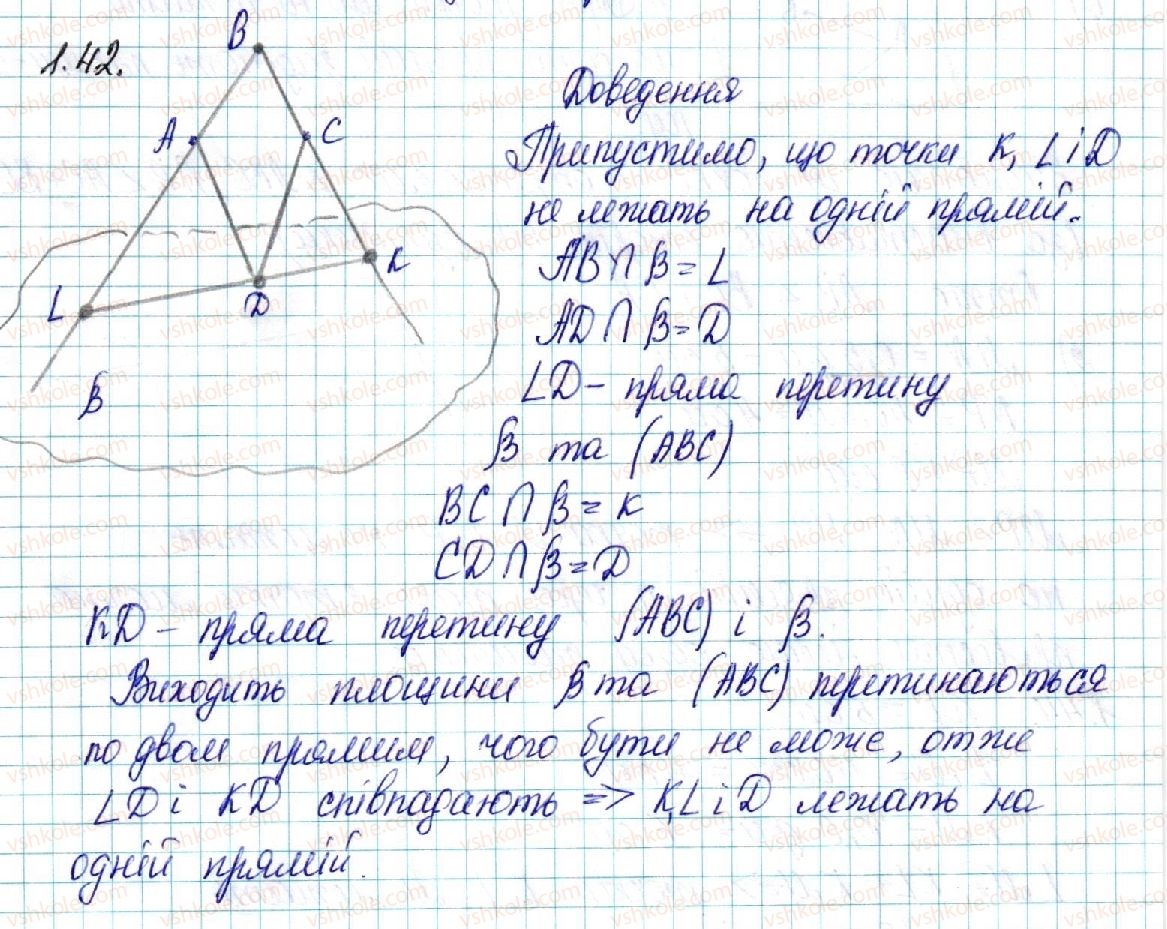 1.42.
B
A
C
K
L
D
β
Доведення
Припустимо, що точки K, L і D
не лежать на одній прямій.
AB ∩ β = L
AD ∩ β = D
LD – пряма перетину
β та (ABC)
BC ∩ β = K
CD ∩ β = D
KD – пряма перетину (ABC) і β.
Виходить площини β та (ABC) перетинаються
по двом прямим, чого бути не може, отже
LD і KD співпадають => K, L і D лежать на
одній прямій.
vshkole.com